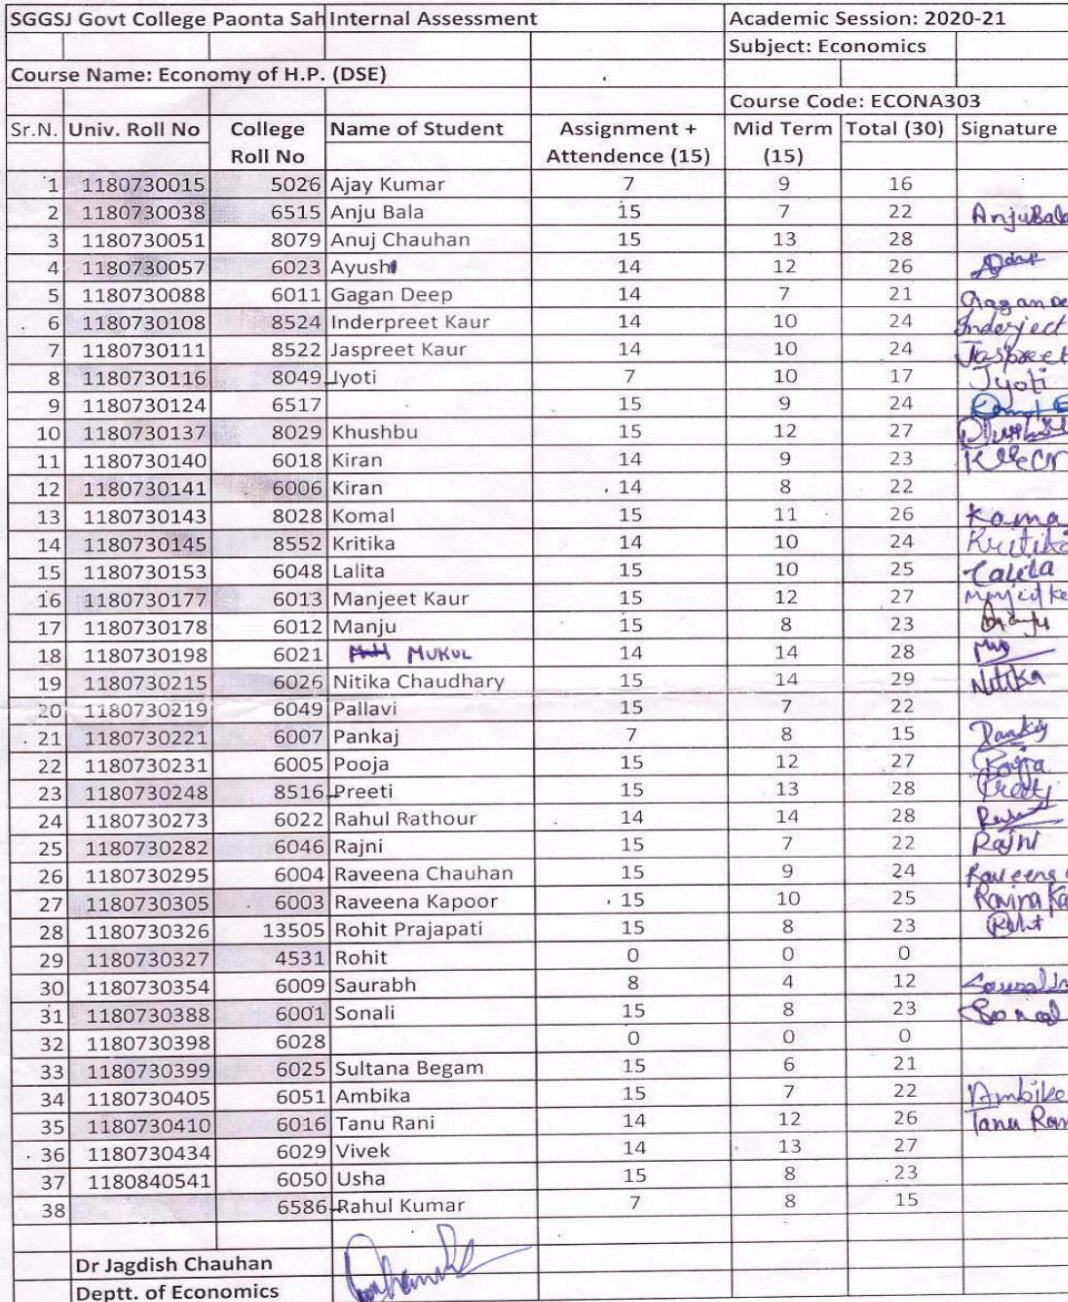 SGGSJ Govt College Paonta Sah Internal Assessment Academic Session: 2020-21
Subject: Economics
Course Name: Economy of H.P. (DSE)
Course Code: ECONA303
Sr.N. Univ. Roll No College Name of Student Assignment + Mid Term Total (30) Signature
Roll No Attendence (15) (15)
1 1180730015 5026 Ajay Kumar 7 9 16
2 1180730038 6515 Anju Bala 15 7 22 AnjuBala
3 1180730051 8079 Anuj Chauhan 15 13 28
4 1180730057 6023 Ayush 14 12 26
5 1180730088 6011 Gagan Deep 14 7 21 Gagan De
6 1180730108 8524 Inderpreet Kaur 14 10 24 Inderjeet
7 1180730111 8522 Jaspreet Kaur 14 10 24 Jaspreet
8 1180730116 8049 Jyoti 7 10 17 Jyoti
9 1180730124 6517 15 9 24
10 1180730137 8029 Khushbu 15 12 27
11 1180730140 6018 Kiran 14 9 23
12 1180730141 6006 Kiran 14 8 22
13 1180730143 8028 Komal 15 11 26 Koma
14 1180730145 8552 Kritika 14 10 24 Kritika
15 1180730153 6048 Lalita 15 10 25 Lalita
16 1180730177 6013 Manjeet Kaur 15 12 27 Manjeet Ka
17 1180730178 6012 Manju 15 8 23 Manju
18 1180730198 6021 MUKUL 14 14 28
19 1180730215 6026 Nitika Chaudhary 15 14 29 Nitika
20 1180730219 6049 Pallavi 15 7 22
21 1180730221 6007 Pankaj 7 8 15 Pankaj
22 1180730231 6005 Pooja 15 12 27 Pooja
23 1180730248 8516 Preeti 15 13 28 Preeti
24 1180730273 6022 Rahul Rathour 14 14 28
25 1180730282 6046 Rajni 15 7 22 Rajni
26 1180730295 6004 Raveena Chauhan 15 9 24 Raveena
27 1180730305 6003 Raveena Kapoor 15 10 25 Ravina Ka
28 1180730326 13505 Rohit Prajapati 15 8 23 Rohit
29 1180730327 4531 Rohit 0 0 0
30 1180730354 6009 Saurabh 8 4 12
31 1180730388 6001 Sonali 15 8 23 Sonal
32 1180730398 6028 0 0 0
33 1180730399 6025 Sultana Begam 15 6 21
34 1180730405 6051 Ambika 15 7 22 Ambika
35 1180730410 6016 Tanu Rani 14 12 26 Tanu Ran
36 1180730434 6029 Vivek 14 13 27
37 1180840541 6050 Usha 15 8 23
38 6586 Rahul Kumar 7 8 15
Dr Jagdish Chauhan
Deptt. of Economics